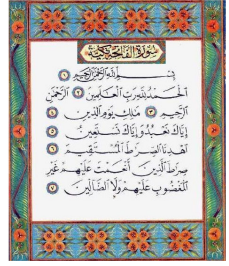 سورة الفاتحة مكية
بسم الله الرحمن الرحيم ١
الحمد لله رب العلمين ٢ الرحمن
الرحيم ٣ ملك يوم الدين ٤
إياك نعبد وإياك نستعين ٥
اهدنا الصراط المستقيم ٦
صراط الذين أنعمت عليهم غير
المغضوب عليهم ولا الضالين ٧